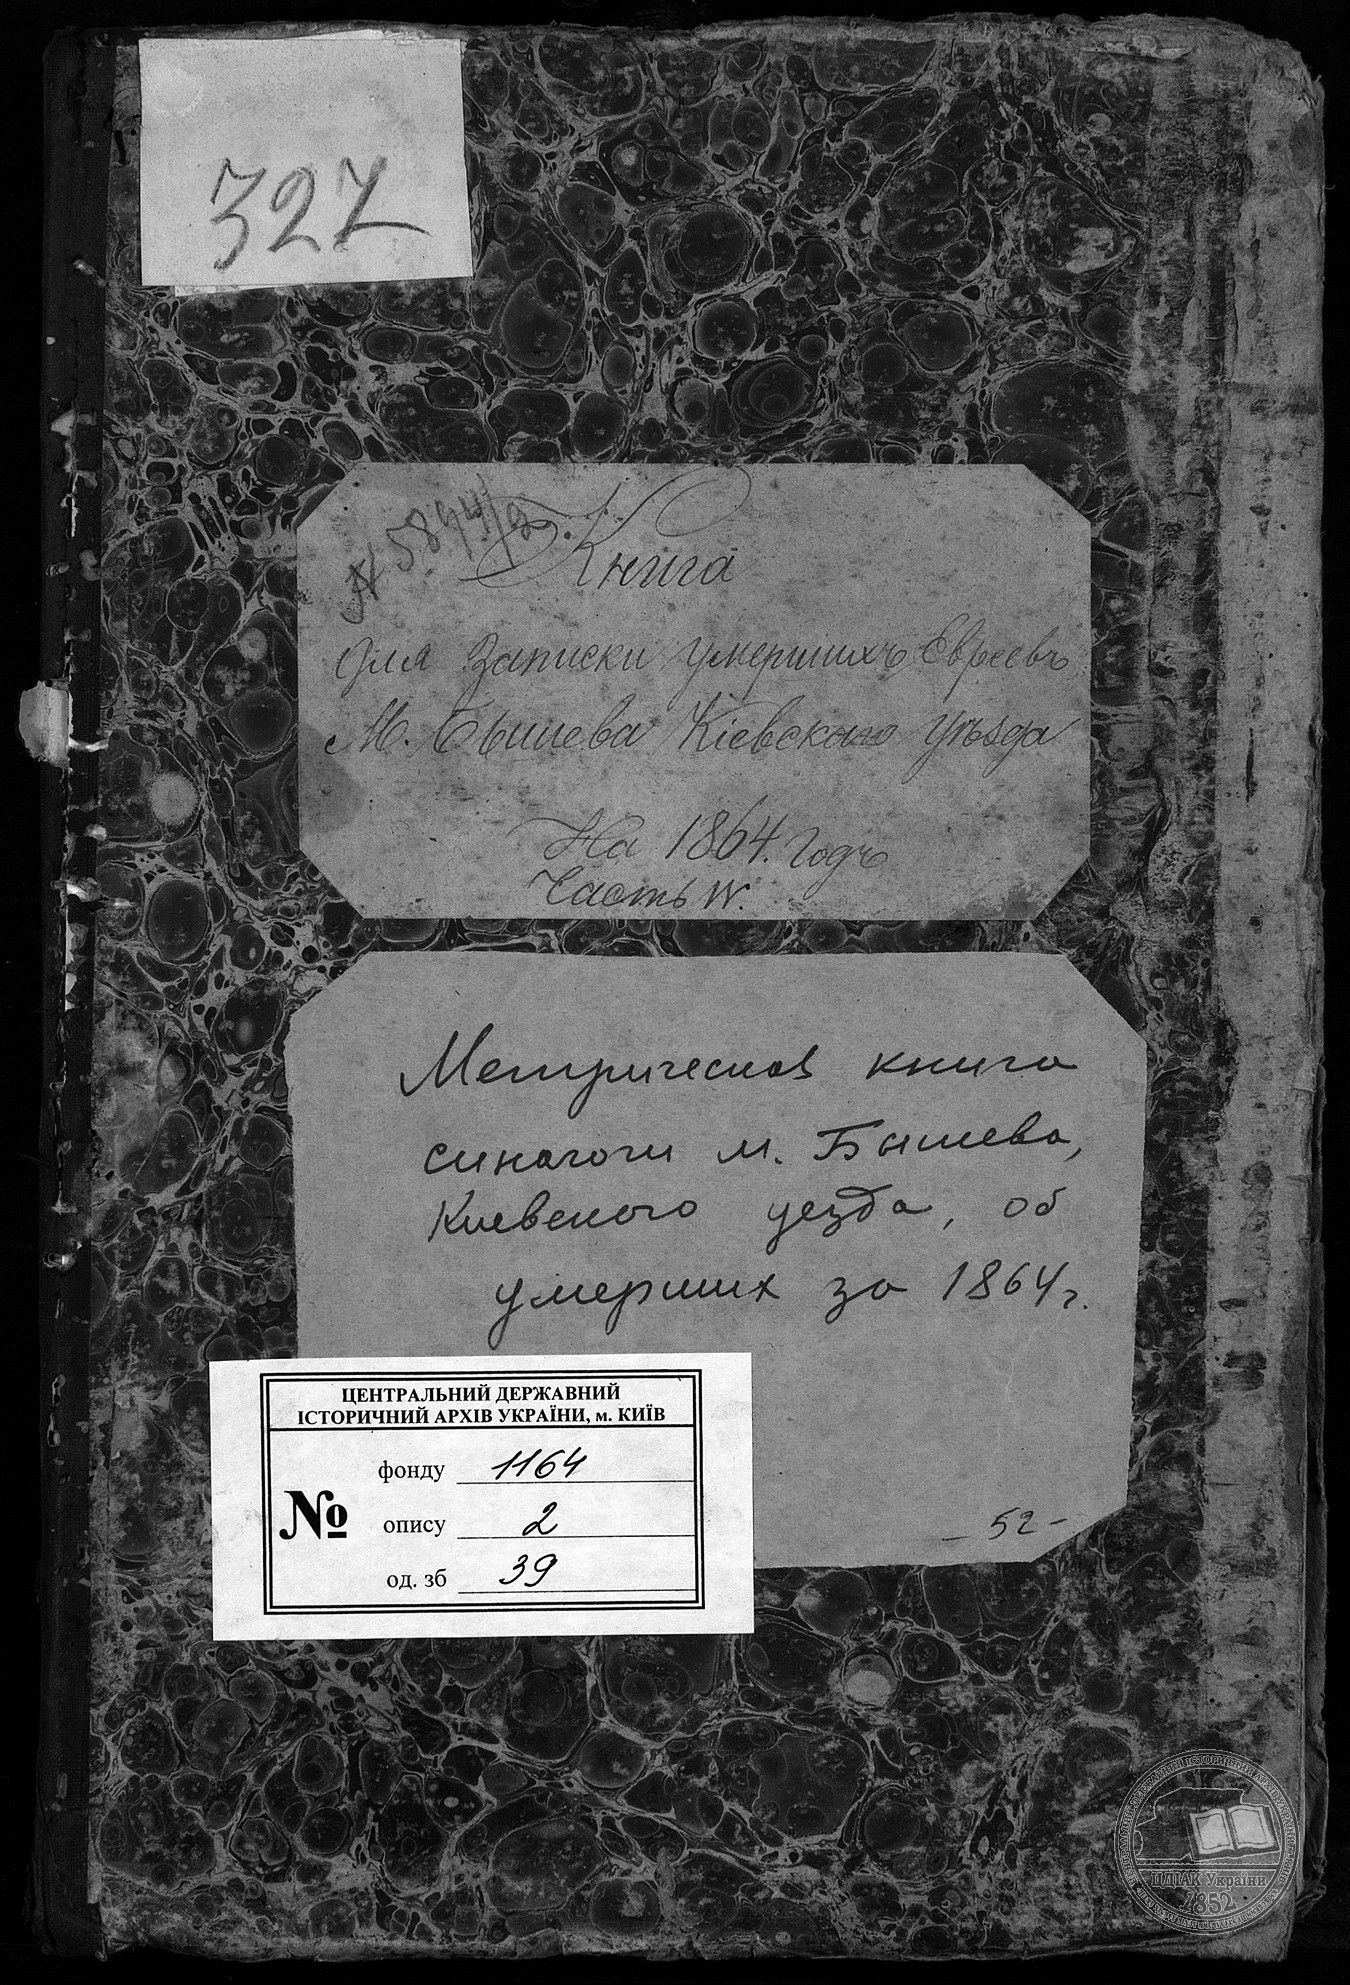 327
№ 5844/2
Книга
для записки умершихъ Евреевъ
М. Бышева Кіевскаго уѣзда
На 1864. годъ
Часть IV.
Метрическая книга
синагоги м. Бышева,
Киевского уезда, об
умерших за 1864 г.
- 52 -
ЦЕНТРАЛЬНИЙ ДЕРЖАВНИЙ
ІСТОРИЧНИЙ АРХІВ УКРАЇНИ, м. КИЇВ
№
фонду 1164
опису 2
од. зб 39
ЦДІАК України
1852